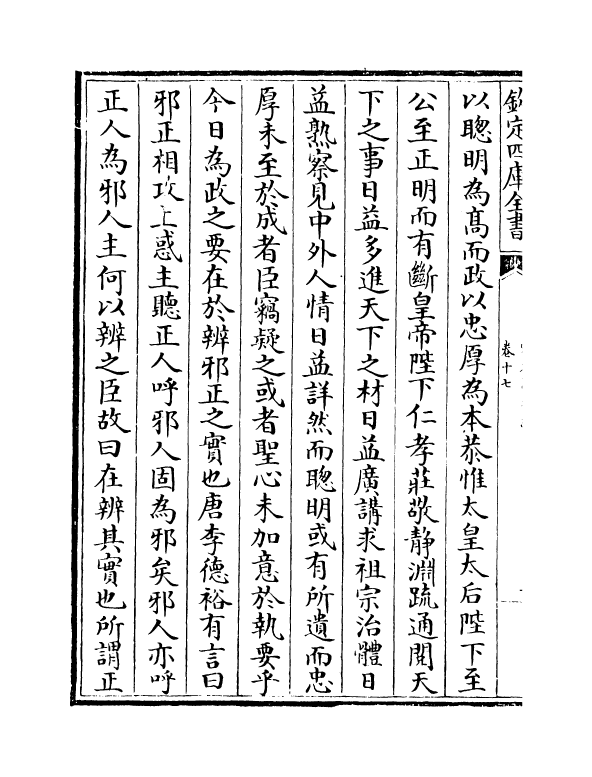 欽定四庫全書
卷十七
以聰明為髙而政以忠厚為本恭惟太皇太后陛下至
公至正明而有斷皇帝陛下仁孝莊敬靜淵疏通閱天
下之事日益多進天下之材日益廣講求祖宗治體日
益熟察見中外人情日益詳然而聰明或有所遺而忠
厚未至於成者臣竊疑之或者聖心未加意於執要乎
今日為政之要在於辨邪正之實也唐李德裕有言曰
邪正相攻上惑主聽正人呼邪人固為邪矣邪人亦呼
正人為邪人主何以辨之臣故曰在辨其實也所謂正